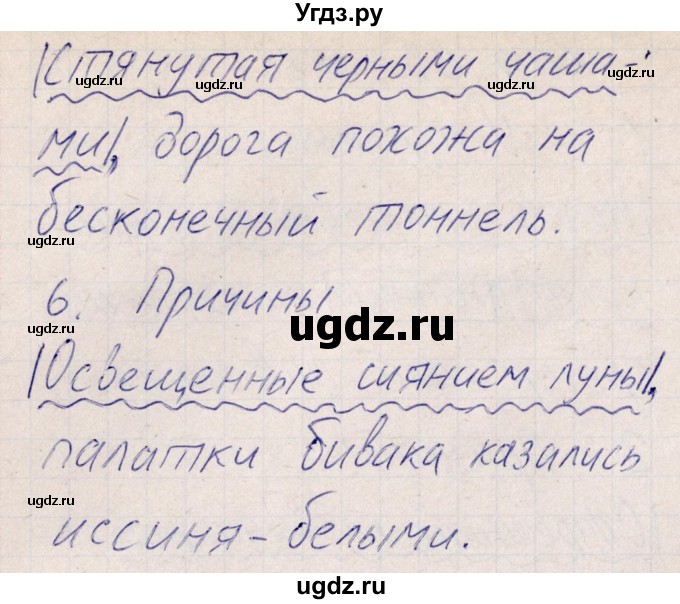 Угдз.ру
|Стянутая черными чаша-
ми|, дорога похожа на
бесконечный тоннель.
6. Причины
|Освещенные сиянием луны|,
палатки бивака казались
иссиня-белыми.
ugdz.ru
ugdz.ru
ugdz.ru
ugdz.ru
ugdz.ru
ugdz.ru
ugdz.ru
ugdz.ru